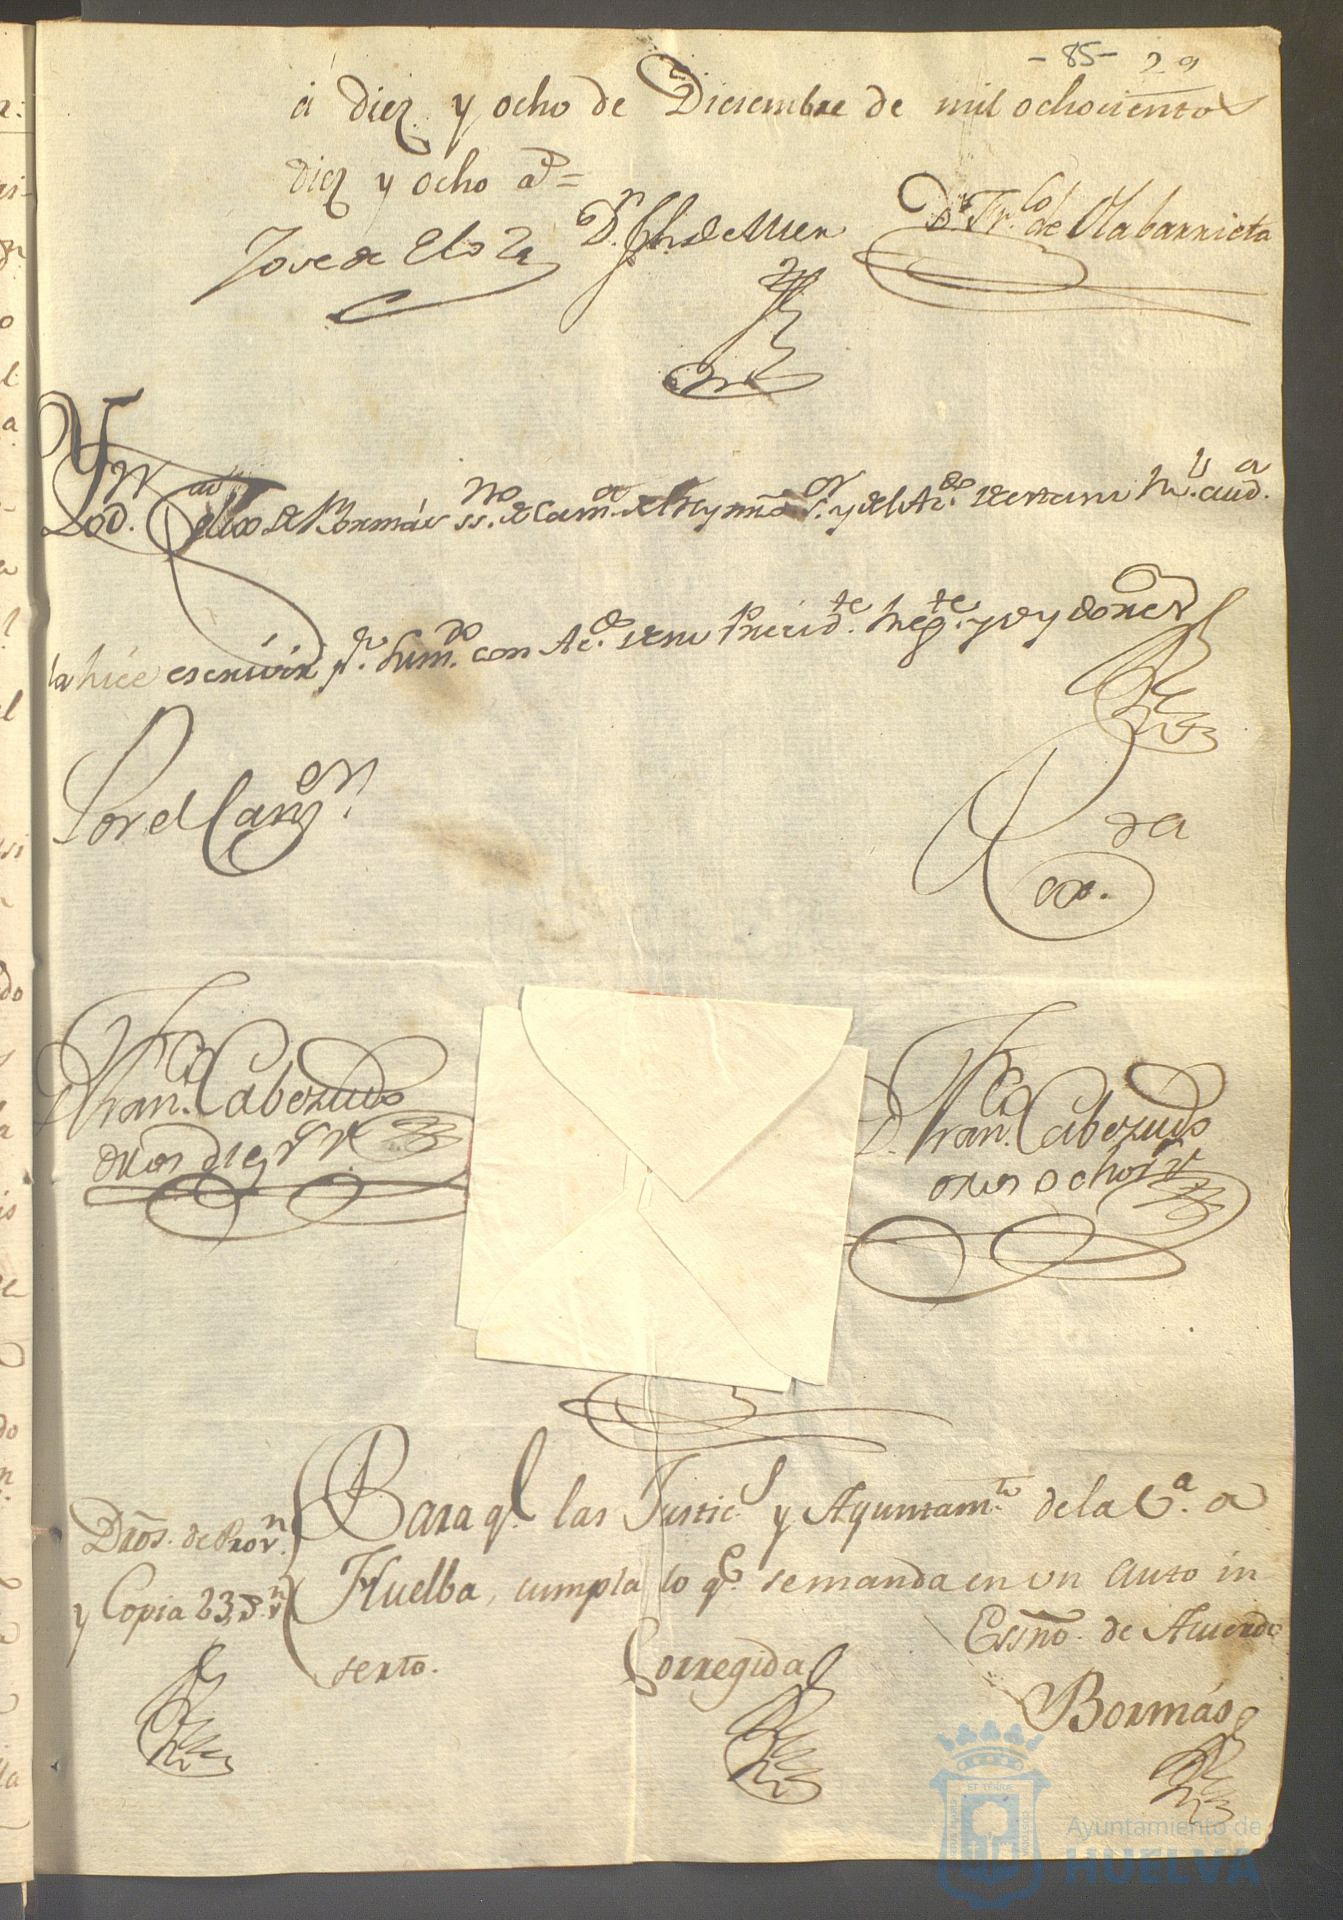 -85- 29
á diez y ocho de Diciembre de mil ochocientos
diez y ocho a.s=
Jose de Eloza Dr. de Mier Dr. Fr.co de Olabarrieta
Yo D. Felix de Bormás ss.no de Cam.a del Rey nrõ S.or y del Ac.do de esta su R.l aud.a
la hice escrivir p.r su m.do con Ac.do de su Precid.te Reg.te y oydores
Por el Canz.er
Rda
Fran.co Cabezudo
dros diez r.s v.n
D. Fran.co Cabezudo
dros ocho r.s v.n
Dros. de Prov.n
y Copia 23,, r.s v.n
Para q.e las Justic.s y Ayuntam.to de la V.a de
Huelba, cumpla lo q.e se manda en un auto in
serto.
Corregida
Essño. de Acuerdo
Bormás
Ayuntamiento de
HUELVA